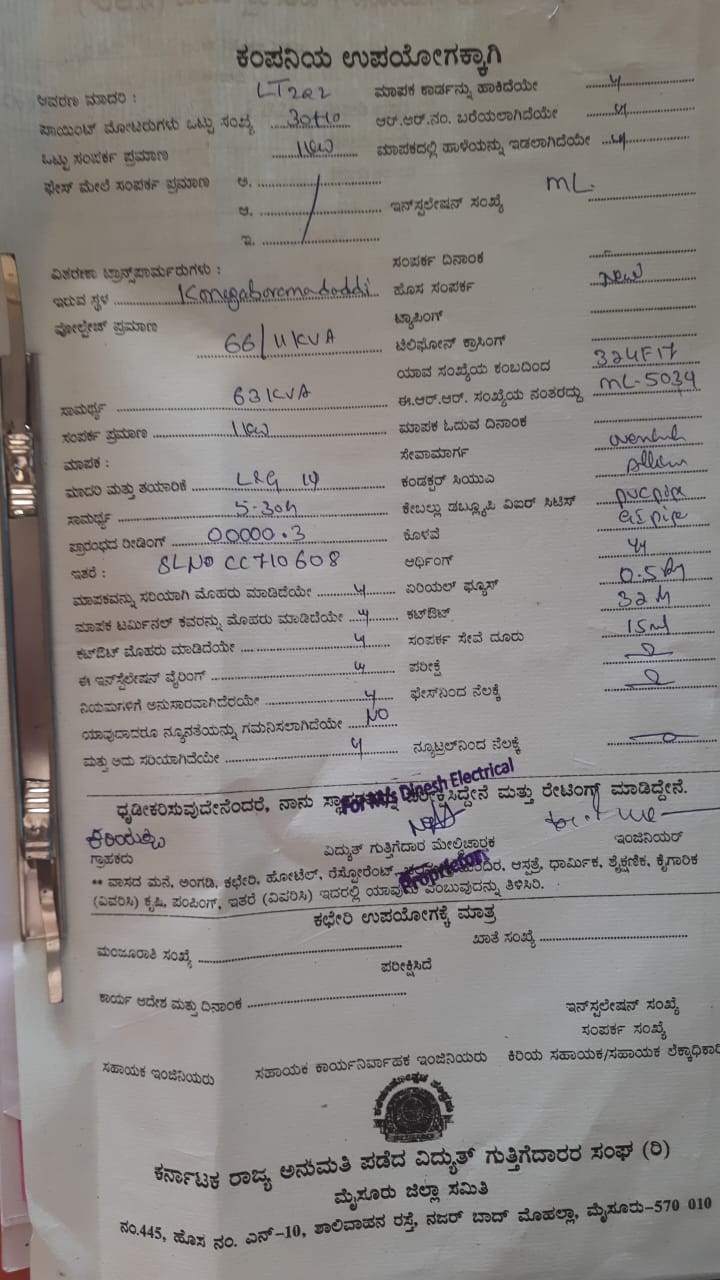 ಕಂಪನಿಯ ಉಪಯೋಗಕ್ಕಾಗಿ
ಆವರಣ ಮಾದರಿ : LT2a2 ಮಾಪಕ ಕಾರ್ಡನ್ನು ಹಾಕಿದೆಯೇ
ಪಾಯಿಂಟ್ ಮೋಟರುಗಳು ಒಟ್ಟು ಸಂಖ್ಯೆ ಆರ್.ಆರ್.ನಂ. ಬರೆಯಲಾಗಿದೆಯೇ
ಒಟ್ಟು ಸಂಪರ್ಕ ಪ್ರಮಾಣ 1kw ಮಾಪಕದಲ್ಲಿ ಹಾಳೆಯನ್ನು ಇಡಲಾಗಿದೆಯೇ
ಫೇಸ್ ಮೇಲೆ ಸಂಪರ್ಕ ಪ್ರಮಾಣ ಅ.
ಆ. ಇನ್‌ಸ್ಪಲೇಷನ್ ಸಂಖ್ಯೆ ML
ಇ.
ವಿತರಣಾ ಟ್ರಾನ್ಸ್‌ಪಾರ್ಮರುಗಳು : ಸಂಪರ್ಕ ದಿನಾಂಕ
ಇರುವ ಸ್ಥಳ ಹೊಸ ಸಂಪರ್ಕ New
ವೋಲ್ಟೇಜ್ ಪ್ರಮಾಣ 66/11 KVA ಟ್ಯಾಪಿಂಗ್
ಟೆಲಿಫೋನ್ ಕ್ರಾಸಿಂಗ್
ಯಾವ ಸಂಖ್ಯೆಯ ಕಂಬದಿಂದ 324F17
ಸಾಮರ್ಥ್ಯ 63 KVA ಈ.ಆರ್.ಆರ್. ಸಂಖ್ಯೆಯ ನಂತರದ್ದು ML-5034
ಸಂಪರ್ಕ ಪ್ರಮಾಣ 1kw ಮಾಪಕ ಓದುವ ದಿನಾಂಕ
ಮಾಪಕ : ಸೇವಾಮಾರ್ಗ
ಮಾದರಿ ಮತ್ತು ತಯಾರಿಕೆ L&G ಕಂಡಕ್ಟರ್ ಸಿಯುಎ
ಸಾಮರ್ಥ್ಯ 5-30A ಕೇಬಲ್ಲು ಡಬ್ಲ್ಯೂಪಿ ವಿಐಆರ್ ಸಿಟಿಸ್ PVC pipe
ಪ್ರಾರಂಭದ ರೀಡಿಂಗ್ 00000.3 ಕೊಳವೆ GI pipe
ಇತರೆ : SLNO CC710608 ಆರ್ಥಿಂಗ್
ಮಾಪಕವನ್ನು ಸರಿಯಾಗಿ ಮೊಹರು ಮಾಡಿದೆಯೇ ಏರಿಯಲ್ ಫ್ಯೂಸ್
ಮಾಪಕ ಟರ್ಮಿನಲ್ ಕವರನ್ನು ಮೊಹರು ಮಾಡಿದೆಯೇ ಕಟ್‌ಔಟ್ 32A
ಕಟ್‌ಔಟ್ ಮೊಹರು ಮಾಡಿದೆಯೇ ಸಂಪರ್ಕ ಸೇವೆ ದೂರು
ಈ ಇನ್‌ಸ್ಟೆಲೇಷನ್ ವೈರಿಂಗ್ ಪರೀಕ್ಷೆ
ನಿಯಮಗಳಿಗೆ ಅನುಸಾರವಾಗಿದೆರೆಯೇ ಫೇಸ್‌ನಿಂದ ನೆಲಕ್ಕೆ
ಯಾವುದಾದರೂ ನ್ಯೂನತೆಯನ್ನು ಗಮನಿಸಲಾಗಿದೆಯೇ NO
ಮತ್ತು ಅದು ಸರಿಯಾಗಿದೆಯೇ ನ್ಯೂಟ್ರಲ್‌ನಿಂದ ನೆಲಕ್ಕೆ
For M/s Dinesh Electrical
ಧೃಡೀಕರಿಸುವುದೇನೆಂದರೆ, ನಾನು ಮತ್ತು ರೇಟಿಂಗ್ ಮಾಡಿದ್ದೇನೆ.
ಗ್ರಾಹಕರು ವಿದ್ಯುತ್ ಗುತ್ತಿಗೆದಾರ ಮೇಲ್ವಿಚಾರಕ ಇಂಜಿನಿಯರ್
Proprietor
** ವಾಸದ ಮನೆ, ಅಂಗಡಿ, ಕಛೇರಿ, ಹೋಟೆಲ್, ರೆಸ್ಟೋರೆಂಟ್, ಆಸ್ಪತ್ರೆ, ಧಾರ್ಮಿಕ, ಶೈಕ್ಷಣಿಕ, ಕೈಗಾರಿಕ
(ವಿವರಿಸಿ) ಕೃಷಿ, ಪಂಪಿಂಗ್, ಇತರೆ (ವಿವರಿಸಿ) ಇದರಲ್ಲಿ ಯಾವುದು ಎಂಬುವುದನ್ನು ತಿಳಿಸಿರಿ.
ಕಛೇರಿ ಉಪಯೋಗಕ್ಕೆ ಮಾತ್ರ
ಮಂಜೂರಾತಿ ಸಂಖ್ಯೆ ಖಾತೆ ಸಂಖ್ಯೆ
ಪರೀಕ್ಷಿಸಿದೆ
ಕಾರ್ಯ ಆದೇಶ ಮತ್ತು ದಿನಾಂಕ
ಇನ್‌ಸ್ಪಲೇಷನ್ ಸಂಖ್ಯೆ
ಸಂಪರ್ಕ ಸಂಖ್ಯೆ
ಸಹಾಯಕ ಇಂಜಿನಿಯರು ಸಹಾಯಕ ಕಾರ್ಯನಿರ್ವಾಹಕ ಇಂಜಿನಿಯರು ಕಿರಿಯ ಸಹಾಯಕ/ಸಹಾಯಕ ಲೆಕ್ಕಾಧಿಕಾರಿ
ಕರ್ನಾಟಕ ರಾಜ್ಯ ಅನುಮತಿ ಪಡೆದ ವಿದ್ಯುತ್ ಗುತ್ತಿಗೆದಾರರ ಸಂಘ (ರಿ)
ಮೈಸೂರು ಜಿಲ್ಲಾ ಸಮಿತಿ
ನಂ.445, ಹೊಸ ನಂ. ಎನ್-10, ಶಾಲಿವಾಹನ ರಸ್ತೆ, ನಜರ್ ಬಾದ್ ಮೊಹಲ್ಲಾ, ಮೈಸೂರು-570 010